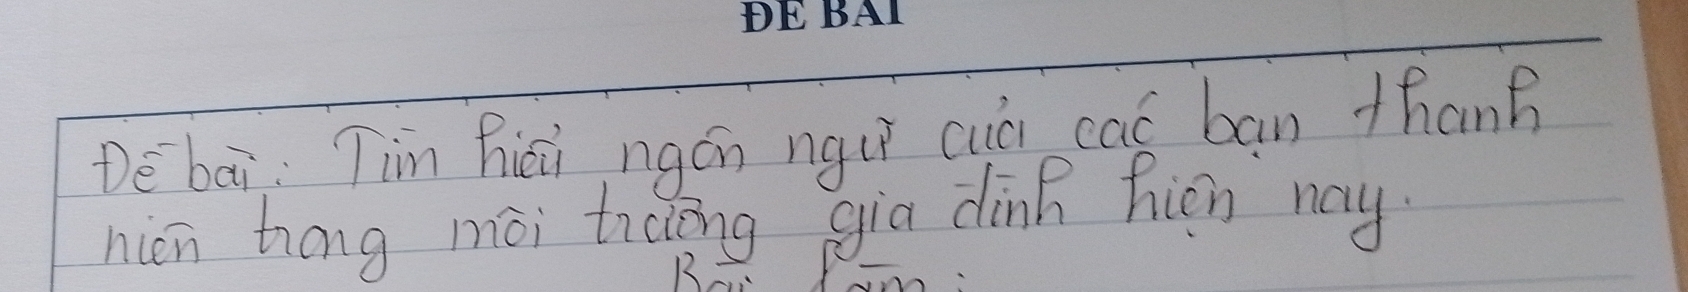 ĐỀ BÀI
Đề bài: Tìm hiểu ngôn ngữ của các bạn thanh
niên trong môi trường gia đình hiện nay.
Bài làm: